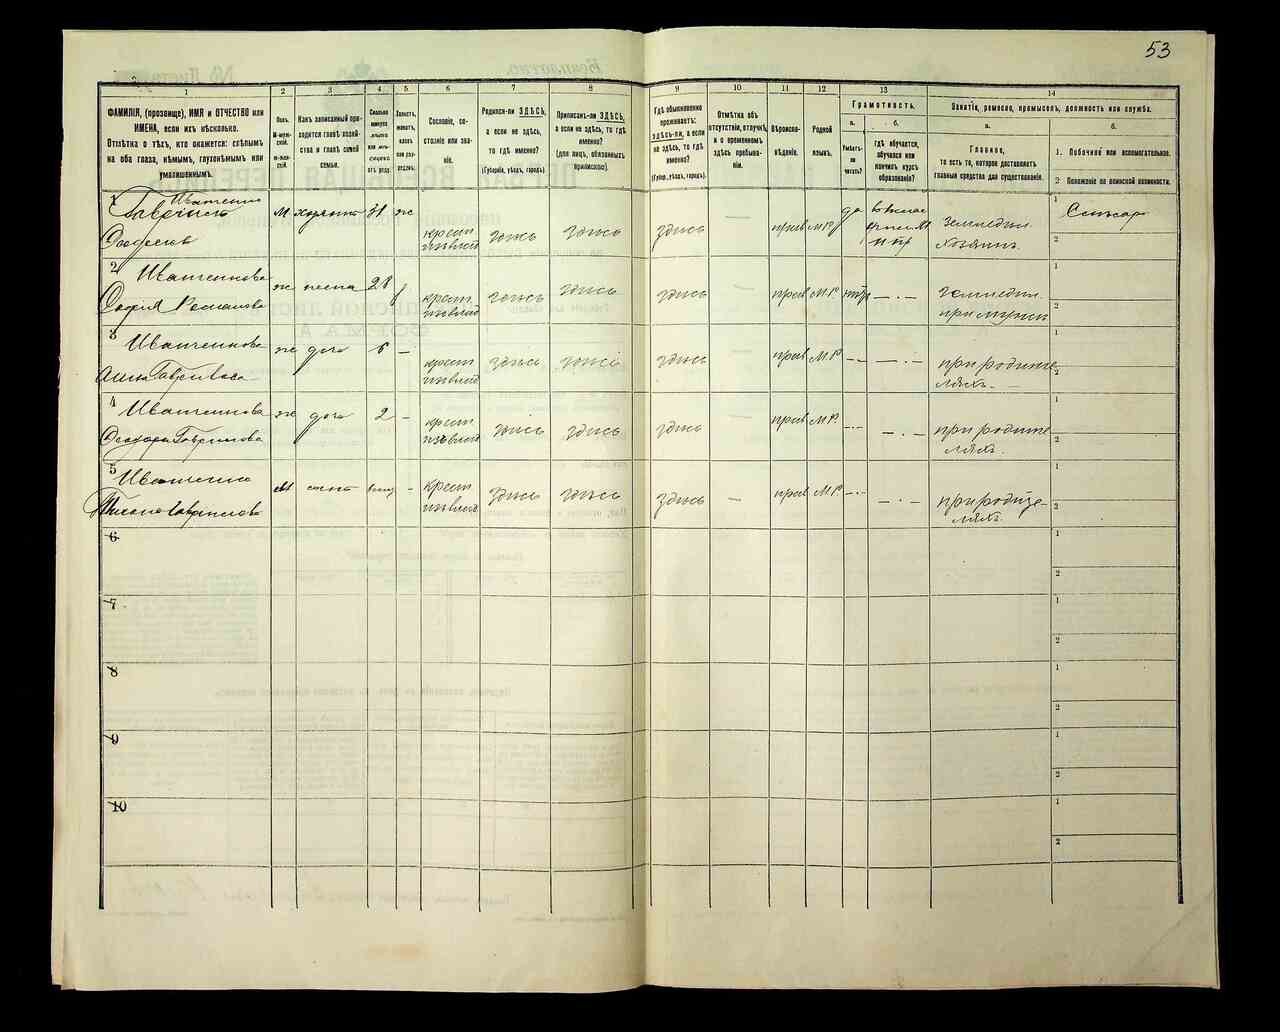 53
1
2
3
4
5
6
7
8
9
10
11
12
13
14
ФАМИЛІЯ, (прозвище), ИМЯ и ОТЧЕСТВО или
ИМЕНА, если ихъ нѣсколько.
Отмѣтка о тѣхъ, кто окажется: слѣпымъ
на оба глаза, нѣмымъ, глухонѣмымъ или
умалишеннымъ.
Полъ.
М-муж-
скій.
Ж-жен-
скій.
Какъ записанный при-
ходится главѣ хозяй-
ства и главѣ своей
семьи.
Сколько
минуло
лѣтъ
или мѣ-
сяцевъ
отъ роду.
Холостъ,
женатъ,
вдовъ
или раз-
веденъ.
Сословіе, со-
стояніе или зва-
ніе.
Родился-ли ЗДѢСЬ,
а если не здѣсь,
то гдѣ именно?
(Губернія, уѣздъ, городъ).
Приписанъ-ли ЗДѢСЬ,
а если не здѣсь, то гдѣ
именно?
(для лицъ, обязанныхъ
припискою).
Гдѣ обыкновенно
проживаетъ:
здѣсь-ли, а если
не здѣсь, то гдѣ
именно?
(Губер., уѣздъ, городъ).
Отмѣтка объ
отсутствіи, отлучкѣ
и о временномъ
здѣсь пребыва-
ніи.
Вѣроиспо-
вѣданіе.
Родной
языкъ.
Грамотность.
а.
Умѣетъ-
ли
читать?
б.
Гдѣ обучается,
обучался или
кончилъ курсъ
образованія?
Занятіе, ремесло, промыселъ, должность или служба.
а.
Главное,
то есть то, которое доставляетъ
главныя средства для существованія.
б.
1. Побочное или вспомогательное.
2 Положеніе по воинской повинности.
1 Иваненко
Гаврiилъ
м хозяинъ 31 ж
крест.
здѣсь здѣсь здѣсь — прав М.Р. да
земледѣл.
хозяинъ
1
2
2 Иваненкова
Софія Романова
ж жена 28
крест.
здѣсь здѣсь здѣсь — прав М.Р. —·—
земледѣл.
при мужѣ
1
2
3 Иваненкова
Анна Гаврилова
ж дочь 6 —
крест.
здѣсь здѣсь здѣсь — прав М.Р. —·— —·—
при родите
ляхъ
1
2
4 Иваненкова
Гаврилова
ж дочь 2 —
крест.
здѣсь здѣсь здѣсь — прав М.Р. —·— —·—
при родите
ляхъ.
1
2
5 Иваненко
Гаврилова
м сынъ —
крест
здѣсь здѣсь здѣсь — прав М.Р. —·— —·—
при родите-
ляхъ
1
2
6
1
2
7
1
2
8
1
2
9
1
2
10
1
2